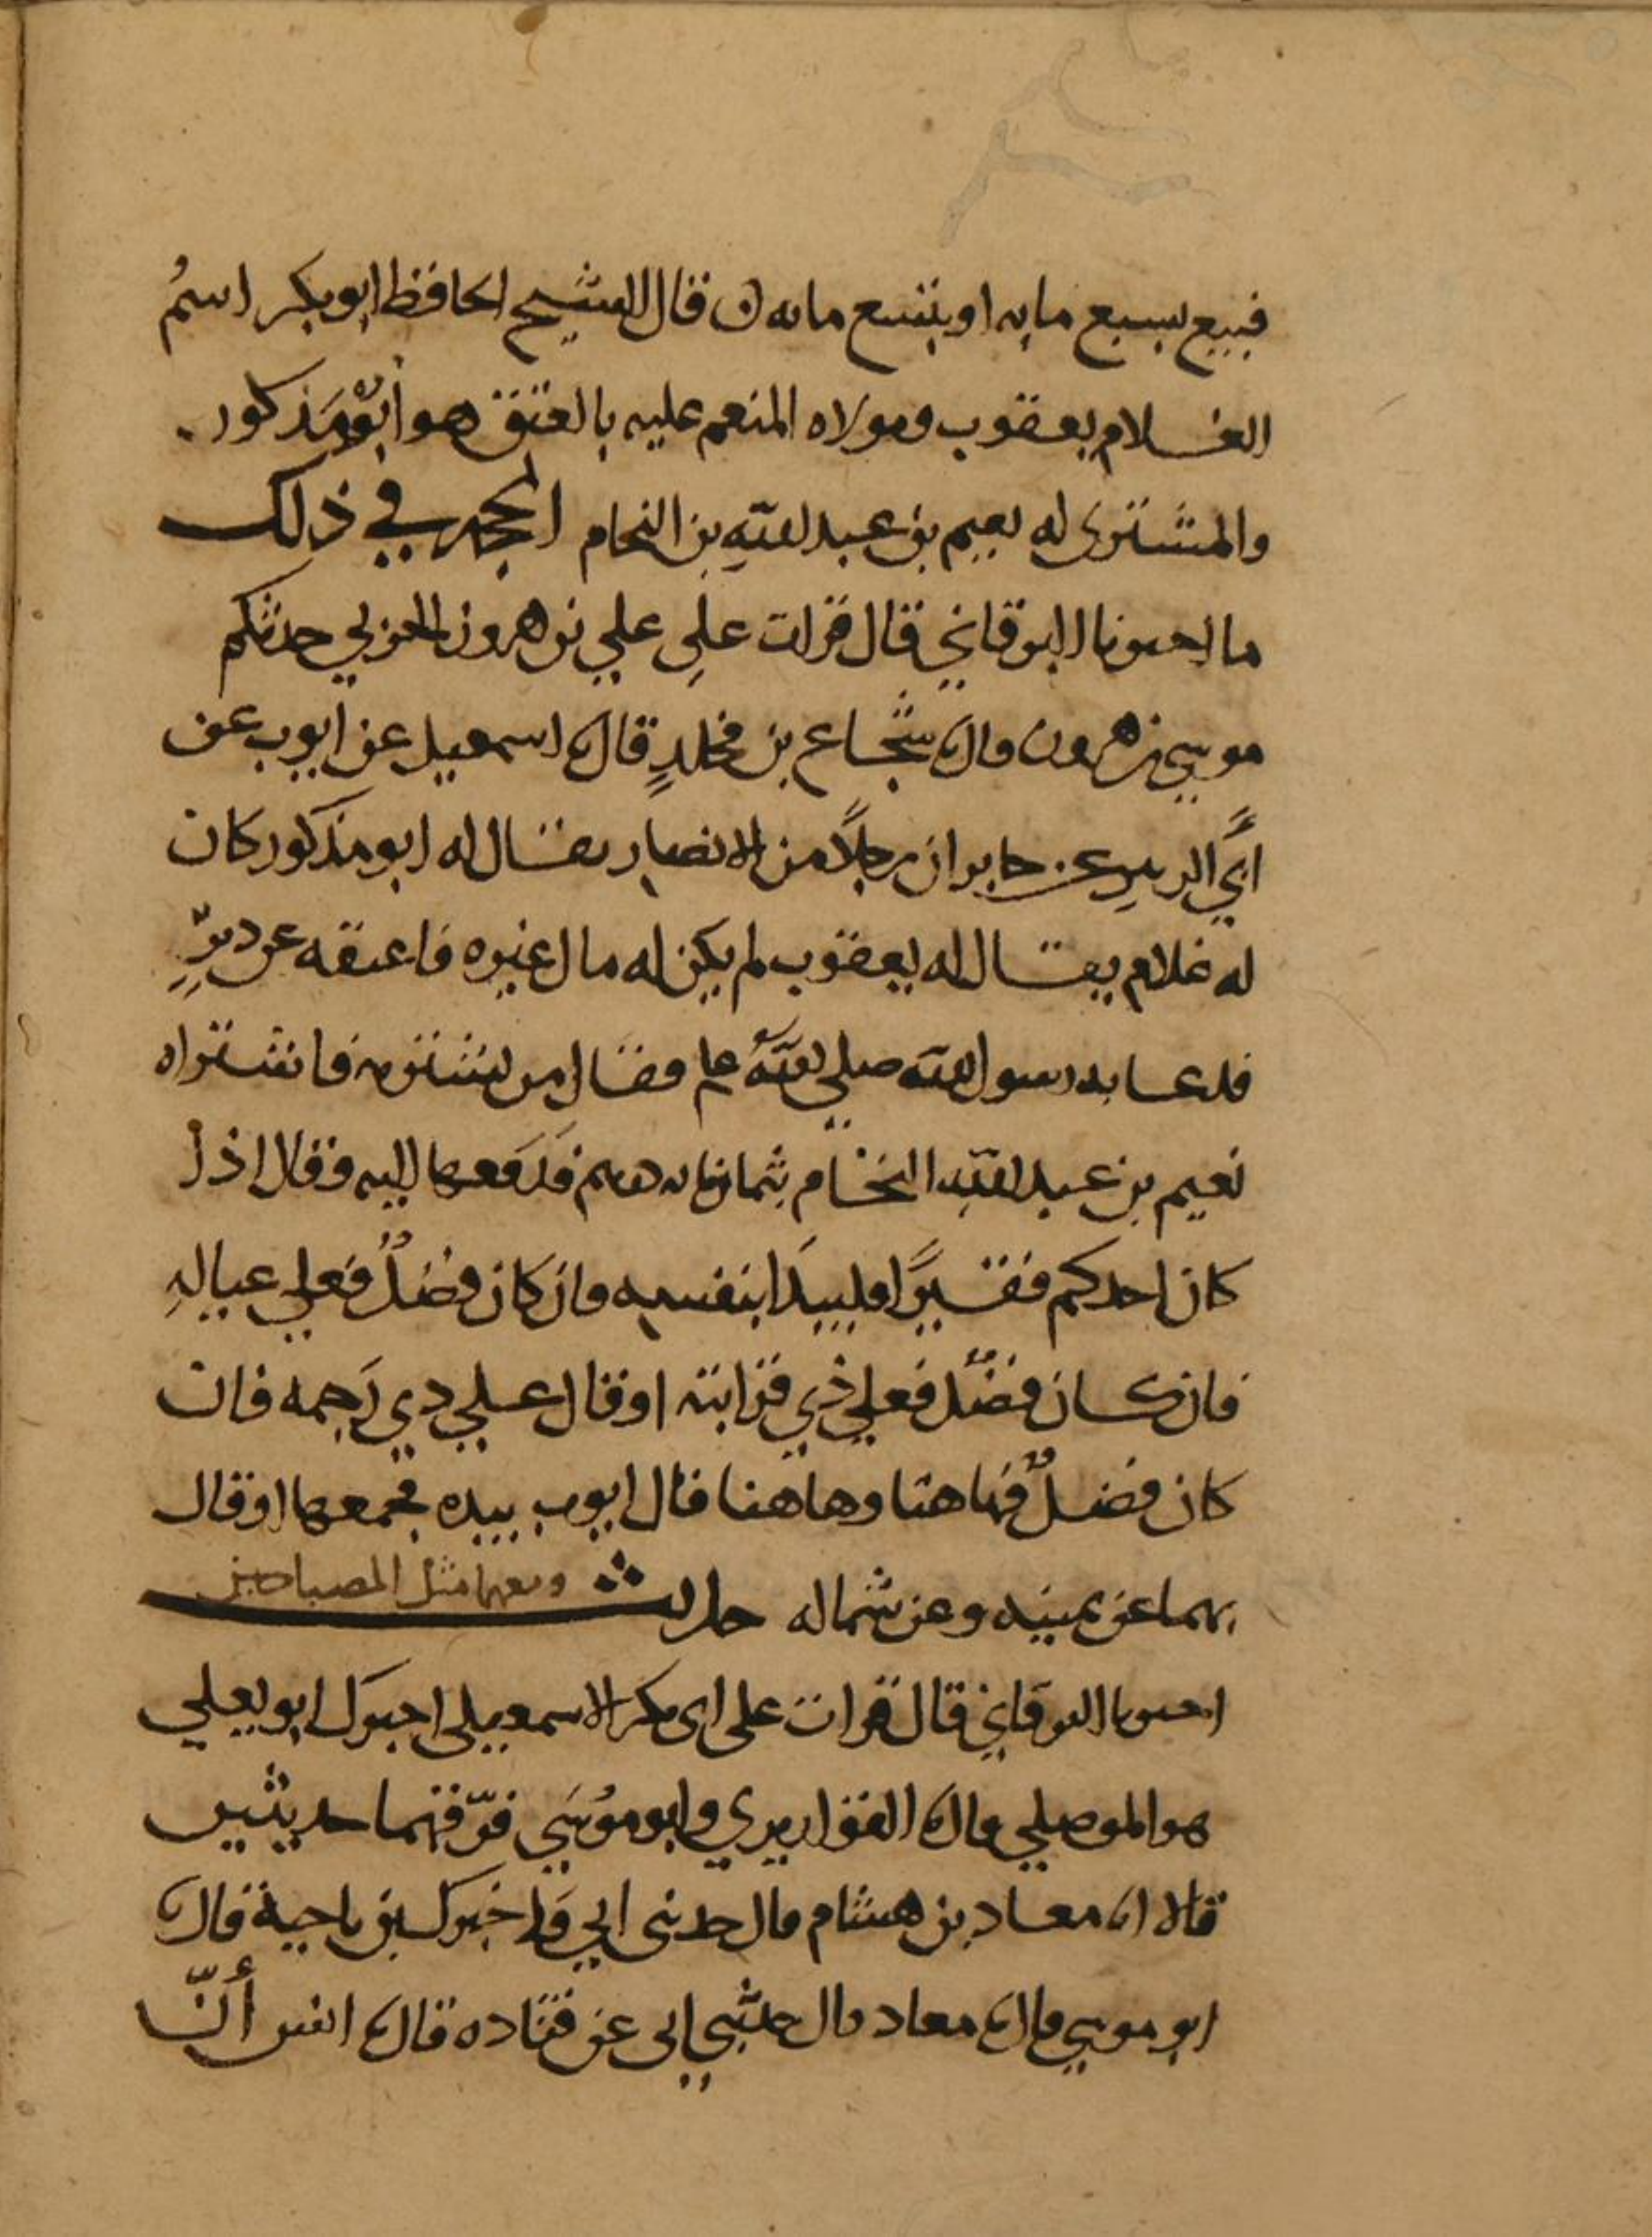 فبيع بسبع مايه او بتسع مايه ن قال الشيخ الحافظ ابو بكر اسمُ
الغلام يعقوب ومولاه المنعم عليه بالعتق هو أبو مذكور.
والمشترى له نعيم بن عبد الله بن النحام الحجه في ذلك
ما اخبرنا البرقاني قال قرات على علي بن هرون الحربي حدثكم
موسى بن هرون قال ثنا شجاع بن مخلدٍ قال ثنا اسمعيل عن ايوب عن
ابي الزبير عن جابر ان رجلاً من الانصار يقال له ابو مذكور كان
له غلام يقال له يعقوب لم يكن له مال غيره فاعتقه عن دبرٍ
فدعا به رسول الله صلى الله عليه وسلم فقال من يشتريه فاشتراه
نعيم بن عبد الله النحام بثمانمايه درهم فدَفعها اليه وقال اذا
كان احدكم فقيرًا فليبدَا بنفسه وان كان فضلٌ فعلى عيالهِ
فان كان فضلٌ فعلى ذي قرابته او قال على ذي رَحِمه فان
كان فضلٌ فهاهنا وهاهنا قال ايوب بيده فجمعها او قال
بهما عن يمينه وعن شماله حديث ومعهما مثل المصباحين
اخبرنا البرقاني قال قرات على ابي بكر الاسمعيلي اخبرك ابو يعلي
هو الموصلي قال ثنا القواريري وابو موُسَى فرّقهما حديثين
قالا انا معاد بن هشام قال حدثني ابي قال واخبرك بن ناجية قال ثنا
ابو موسى قال ثنا معاد قال حدثني ابي عن قتاده قال ثنا انس أنّ